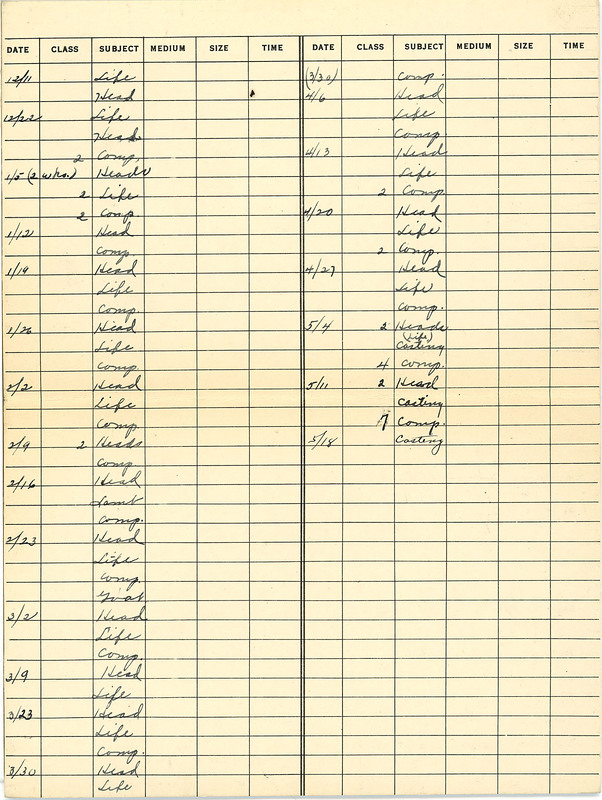 DATE CLASS SUBJECT MEDIUM SIZE TIME
12/11 Life
Head
12/22 Life
Head
2 Comp.
1/5 (2 wks.) Heads
2 Life
2 Comp.
1/12 Head
Comp.
1/19 Head
Life
Comp.
1/26 Head
Life
Comp.
2/2 Head
Life
Comp.
2/9 2 Heads
Comp.
2/16 Head
Comp.
2/23 Head
Life
Comp.
Goat
3/2 Head
Life
Comp.
3/9 Head
Life
3/23 Head
Life
Comp.
3/30 Head
Life
DATE CLASS SUBJECT MEDIUM SIZE TIME
(3/30) Comp.
4/6 Head
Life
Comp
4/13 Head
Life
2 Comp.
4/20 Head
Life
2 Comp.
4/27 Head
Life
Comp.
5/4 2 Heads
(Life)
Casting
4 Comp.
5/11 2 Head
Casting
7 Comp.
5/18 Casting